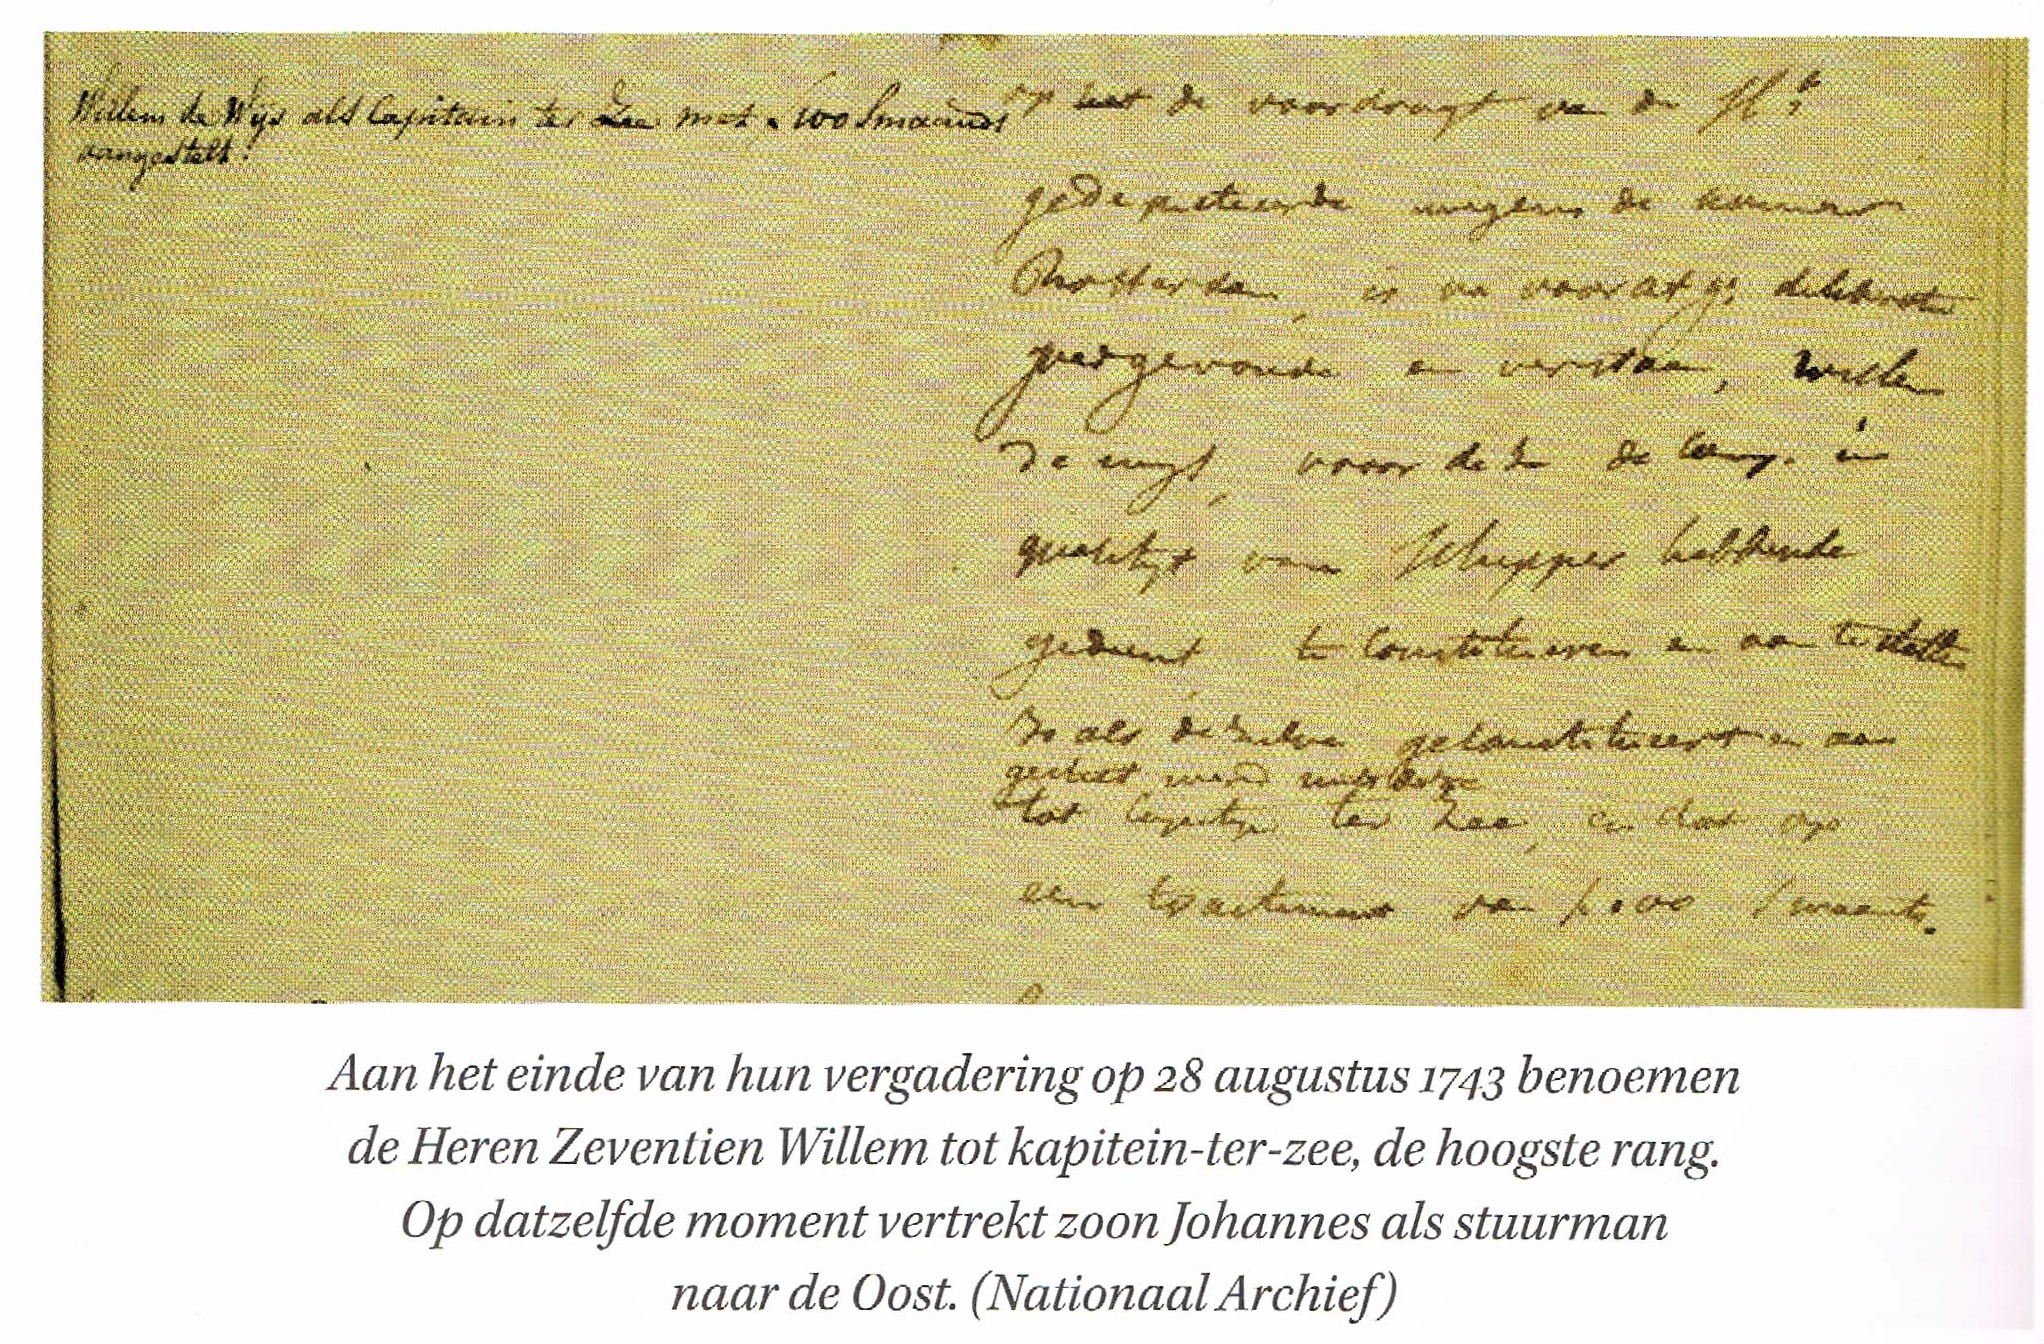 Willem de Wijs als Capitain ter Zee met 100 Smaands
aangestelt.
op de voordragt van de H.re
gedeputeerde wegens de kamer
Rotterdam, is na voorafg: deliberatie
goedgevonde en verstaan, Willem
de wijs, voor dese de Comp. in
qualityt van Schipper hebbende
gedient te Constitueren en aan te stelle
so als deselve geconstitueert en aan
gestelt werd mits dese
tot Capityn ter Zee, en dat op
een tractement van 100 Smaents.
Aan het einde van hun vergadering op 28 augustus 1743 benoemen
de Heren Zeventien Willem tot kapitein-ter-zee, de hoogste rang.
Op datzelfde moment vertrekt zoon Johannes als stuurman
naar de Oost. (Nationaal Archief)